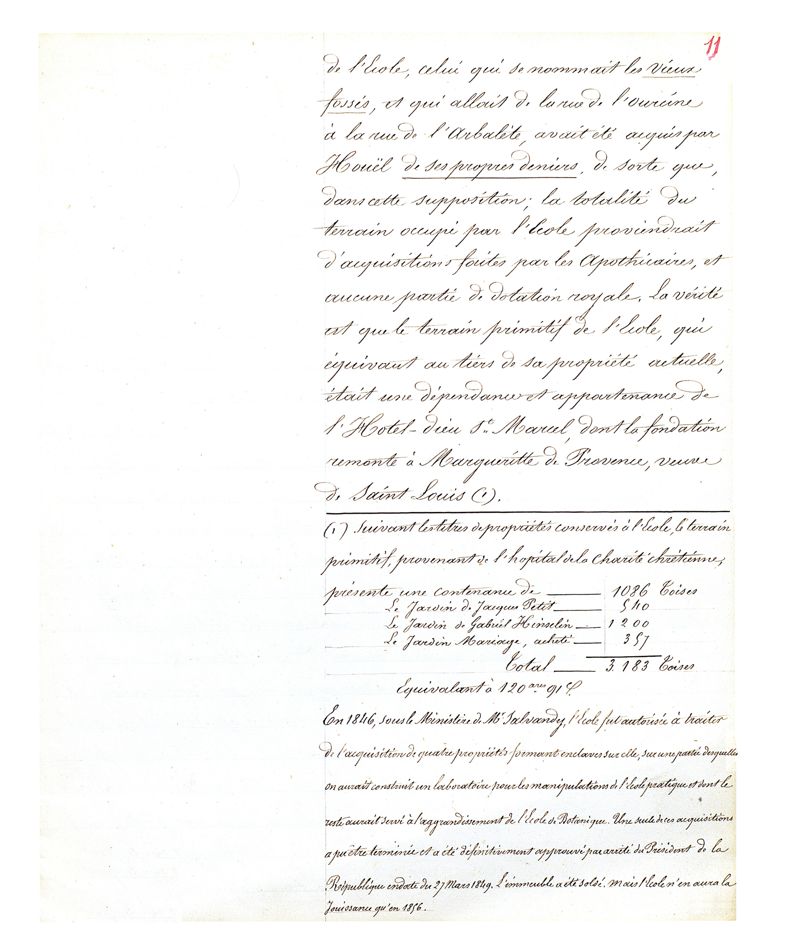 11
de l'Ecole, celui qui se nommait les vieux
fossés, et qui allait de la rue de l'ourcine
à la rue de l'Arbalête, avait été acquis par
Houël de ses propres deniers, de sorte que,
dans cette supposition, la totalité du
terrain occupé par l'école proviendrait
d'acquisitions faites par les Apothicaires, et
aucune partie de dotation royale. La vérité
est que le terrain primitif de l'Ecole, qui
équivaut au tiers de sa propriété actuelle,
était une dépendance et appartenance de
l'Hotel-dieu St. Marcel, dont la fondation
remonte à Margueritte de Provence, veuve
de Saint Louis (1).
(1) Suivant les titres de propriétés conservés à l'Ecole, le terrain
primitif, provenant de l'hopital de la Charité chrétienne,
présente une contenance de —— 1086 Toises
Le Jardin de Jacques Petit —— 540
Le Jardin de Gabriel Hinselin —— 1200
Le Jardin Mariage, acheté —— 357
Total —— 3.183 Toises
Equivalant à 120 ares 91 c.
En 1846, sous le Ministère de Mr. Salvandy, l'école fut autorisée à traiter
de l'acquisition de quatre propriétés formant enclaves sur elle, sur une partie desquelles
on aurait construit un laboratoire pour les manipulations de l'école pratique et dont le
reste aurait servi à l'aggrandissement de l'Ecole de Botanique. Une seule de ces acquisitions
a pu être terminée et a été définitivement approuvé par arrêté du Président de la
République en date du 27 Mars 1849. L'immeuble a été soldé, mais l'Ecole n'en aura la
Jouissance qu'en 1856.